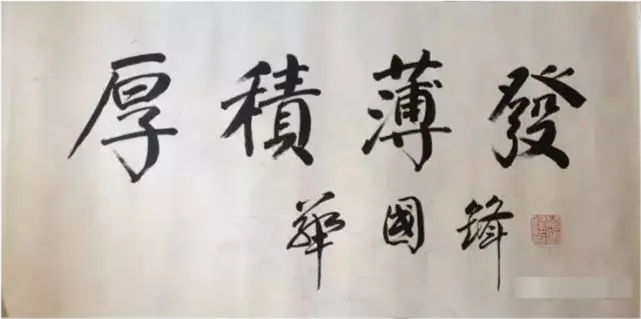 厚積薄發
華國鋒